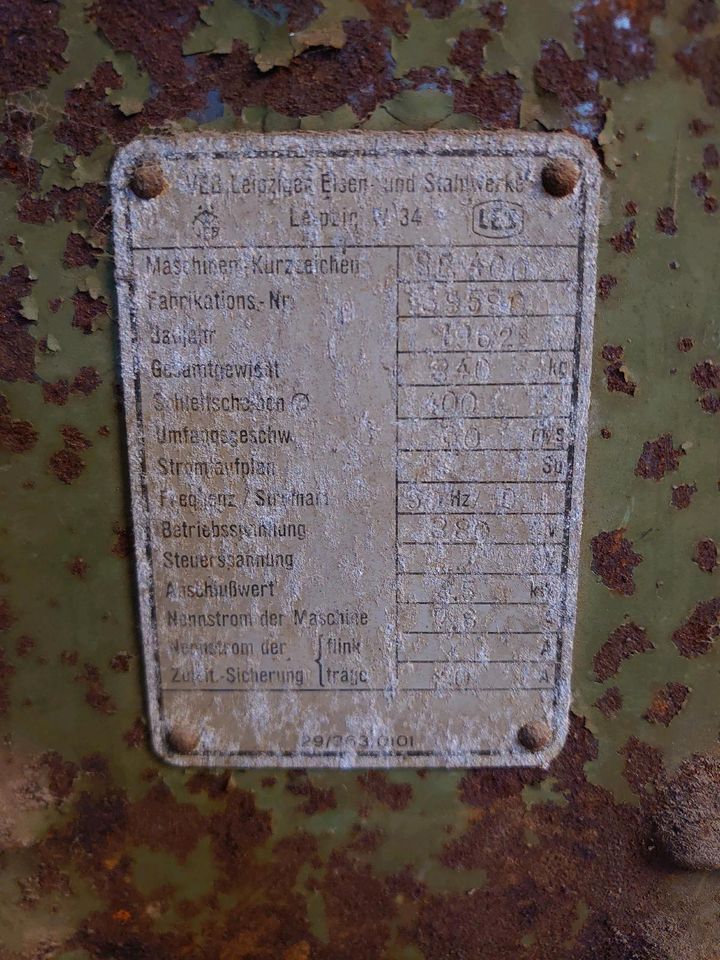 VEB Leipziger Eisen- und Stahlwerke
Leipzig W 34 LES
Maschinen-Kurzzeichen 400
Fabrikations.-Nr.
Baujahr 1962
Gesamtgewicht 340 kg
Schleifscheiben ∅ 400
Umfangsgeschw. m/s
Stromlaufplan Sp
Frequenz / Stromart Hz/
Betriebsspannung 380 V
Steuerspannung V
Anschlußwert kW
Nennstrom der Maschine
Nennstrom der flink A
Zuleit.-Sicherung träge A
29/363/0101